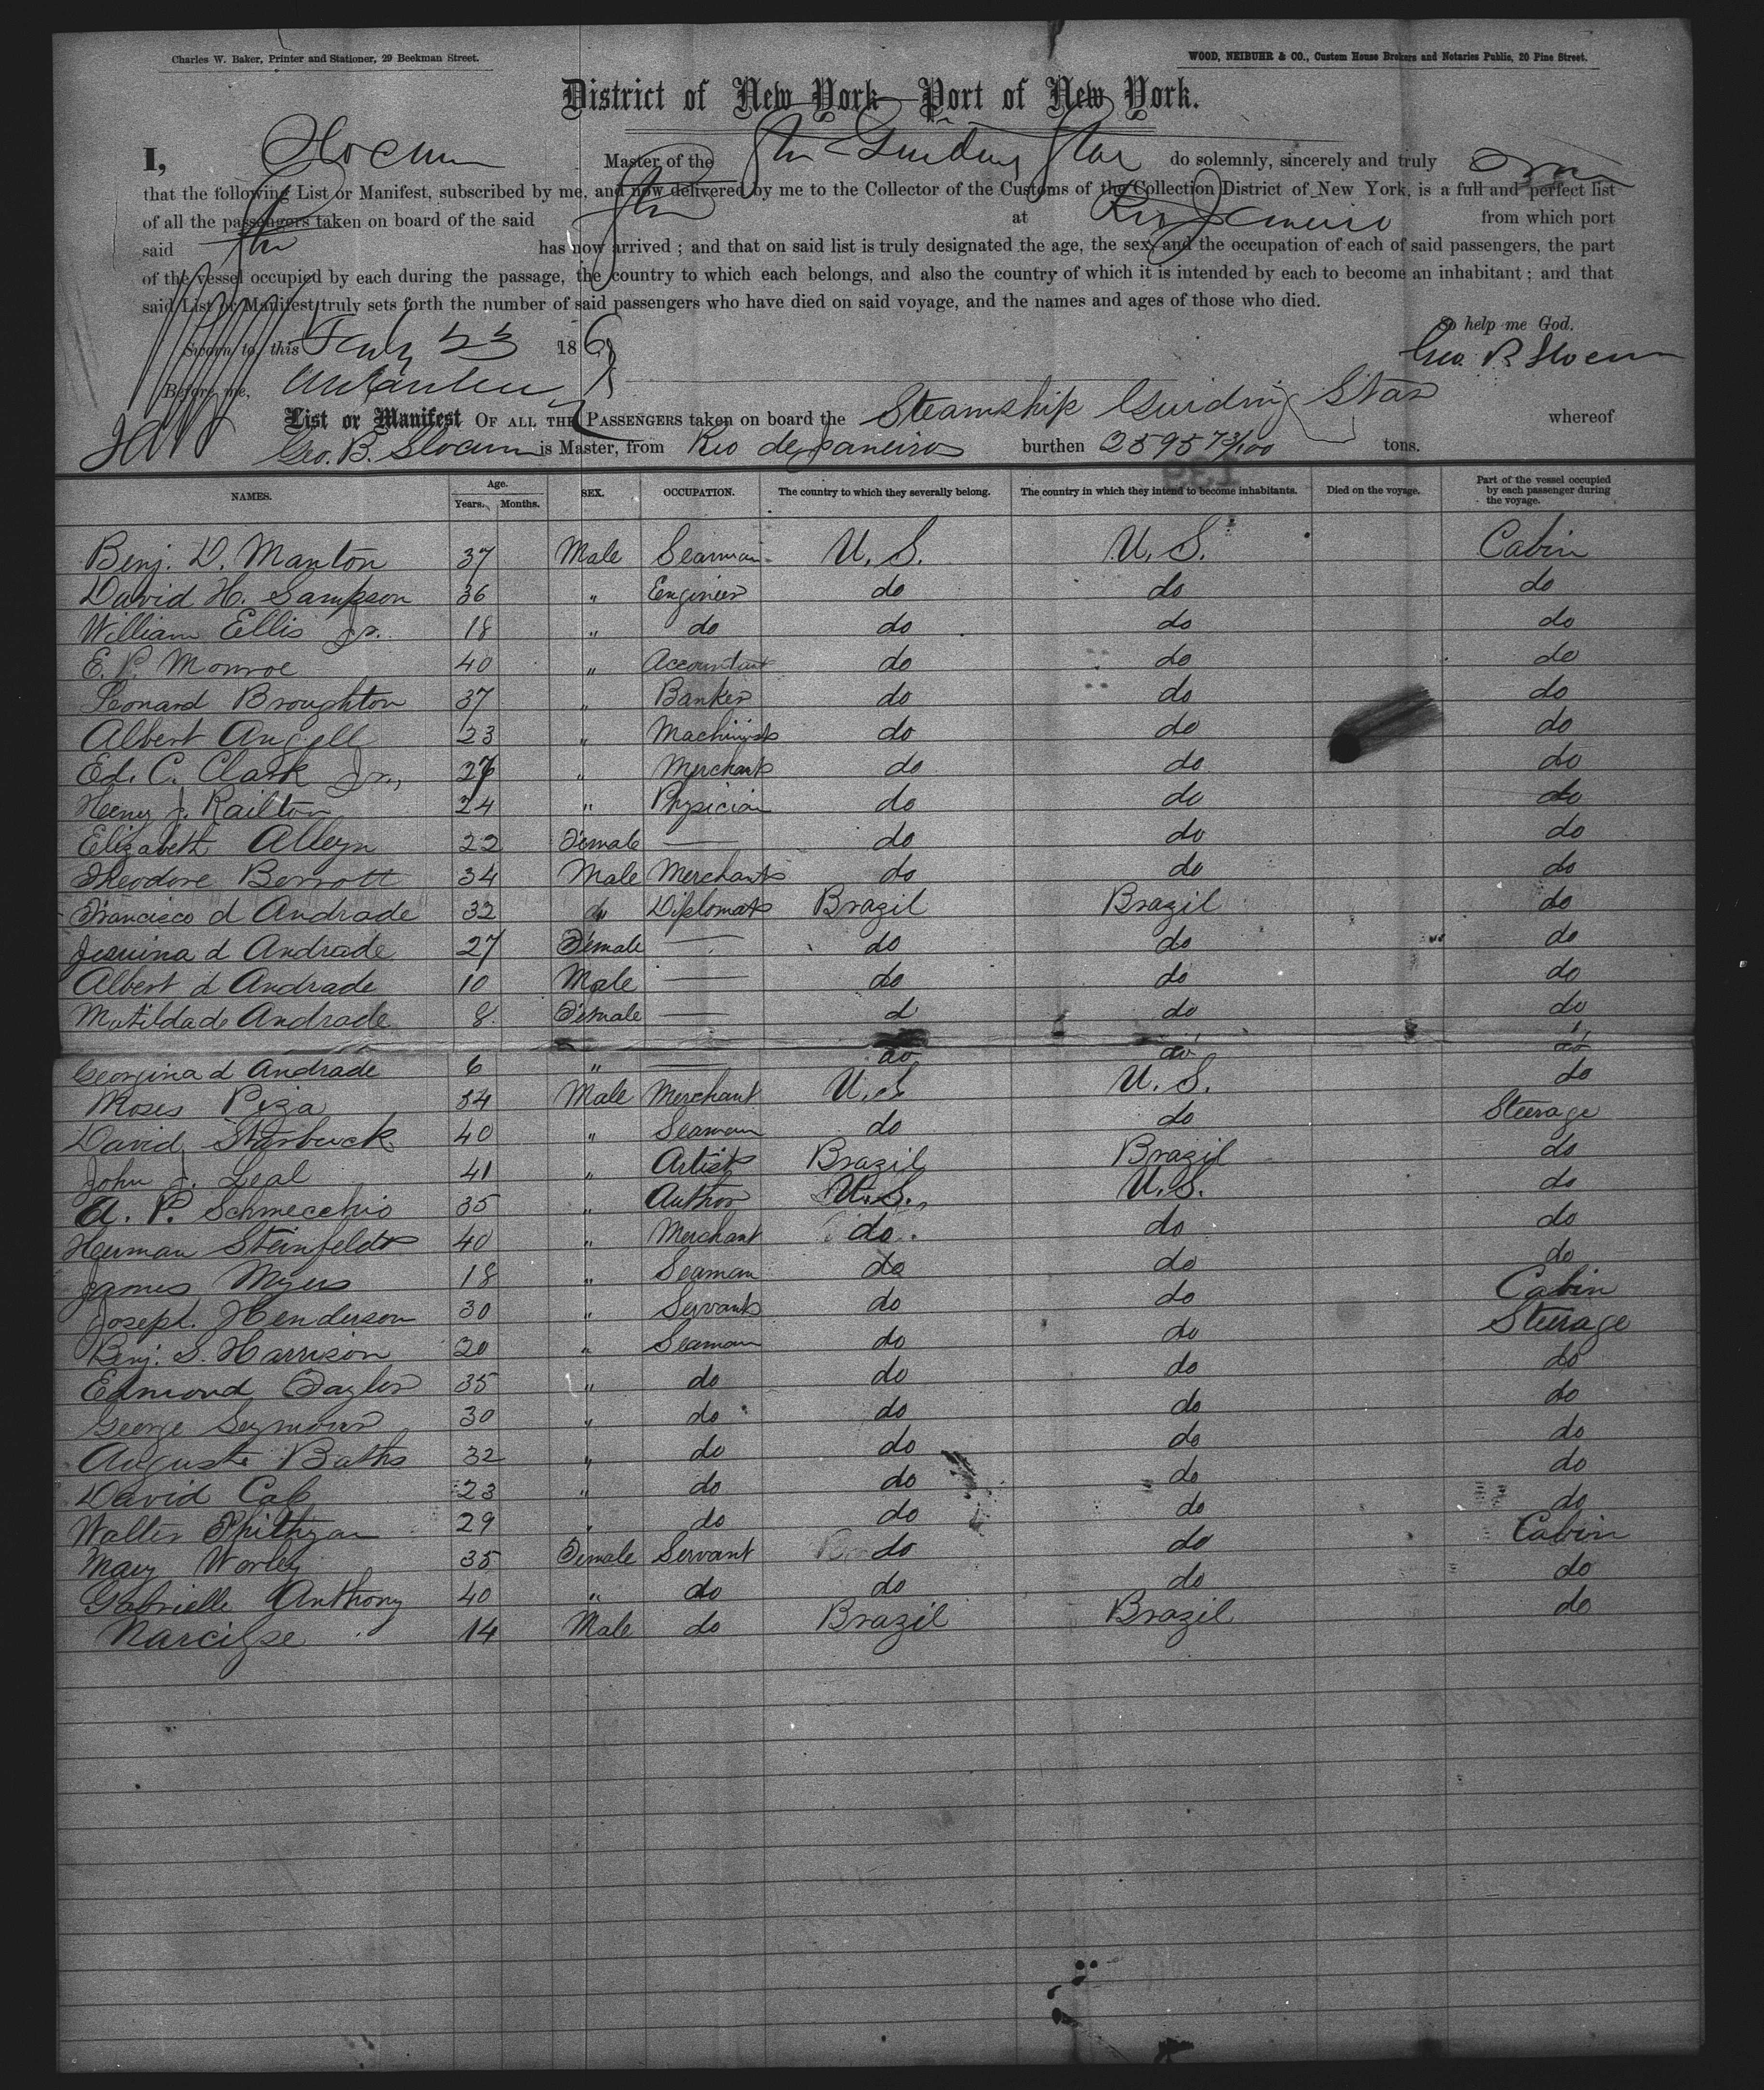 Charles W. Baker, Printer and Stationer, 29 Beekman Street.
WOOD, NEIBUHR & CO., Custom House Brokers and Notaries Public, 20 Pine Street.
District of New York—Port of New York.
I, Slocum Master of the Str Guiding Star do solemnly, sincerely and truly
that the following List or Manifest, subscribed by me, and now delivered by me to the Collector of the Customs of the Collection District of New York, is a full and perfect list
of all the passengers taken on board of the said Str at Rio Janeiro from which port
said Str has now arrived; and that on said list is truly designated the age, the sex, and the occupation of each of said passengers, the part
of the vessel occupied by each during the passage, the country to which each belongs, and also the country of which it is intended by each to become an inhabitant; and that
said List or Manifest truly sets forth the number of said passengers who have died on said voyage, and the names and ages of those who died.
So help me God.
Sworn to this 23 186
Geo. B. Slocum
Before me,
List or Manifest OF ALL THE PASSENGERS taken on board the Steamship Guiding Star whereof
Geo. B. Slocum is Master, from Rio de Janeiro burthen 2595 73/100 tons.
NAMES. Age. Years. Months. SEX. OCCUPATION. The country to which they severally belong. The country in which they intend to become inhabitants. Died on the voyage. Part of the vessel occupied by each passenger during the voyage.
Benj. D. Manton 37 Male Seaman U.S. U.S. Cabin
David H. Sampson 36 " Engineer do do do
William Ellis Jr. 18 " do do do do
E. P. Monroe 40 " Accountant do do do
Leonard Broughton 37 " Banker do do do
Albert Angell 23 " Machinist do do do
Ed. C. Clark Jr., " Merchant do do do
Henry J. Railton 24 " Physician do do do
Elizabeth Alleyn 22 Female — do do do
Theodore Berrott 34 Male Merchant do do do
Francisco d Andrade 32 do Diplomat Brazil Brazil do
d Andrade 27 Female — do do do
Albert d Andrade 10 Male — do do do
Matilda de Andrade 8 Female — d do do
Georgina d Andrade 6 " — do do do
Moses Piza 34 Male Merchant U.S U.S. do
David Starbuck 40 " Seaman do do Steerage
John J. Leal 41 " Artist Brazil Brazil do
A. P. Schmecchio 35 " Author U.S., U.S. do
Herman Steinfeldt 40 " Merchant do. do do
James Myers 18 " Seaman do do do
Joseph Henderson 30 " Servant do do Cabin
Benj. S. Harrison 20 " Seaman do do Steerage
Edmond Taylor 35 " do do do do
George Seymour 30 " do do do do
August Baths 32 " do do do do
David 23 " do do do do
Walter 29 " do do do do
Mary Worley 35 Female Servant do do Cabin
Gabrielle Anthony 40 " do do do do
14 Male do Brazil Brazil do